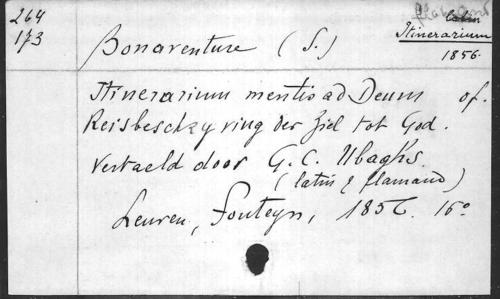 264
173
Latin
Itinerarium
1856.
Bonaventure (S.)
Itinerarium mentis ad Deum of.
Reisbeschryving der Ziel tot God.
Vertaeld door G. C. Ubaghs.
(latin & flamand)
Leuven, Fonteyn, 1856. 16°